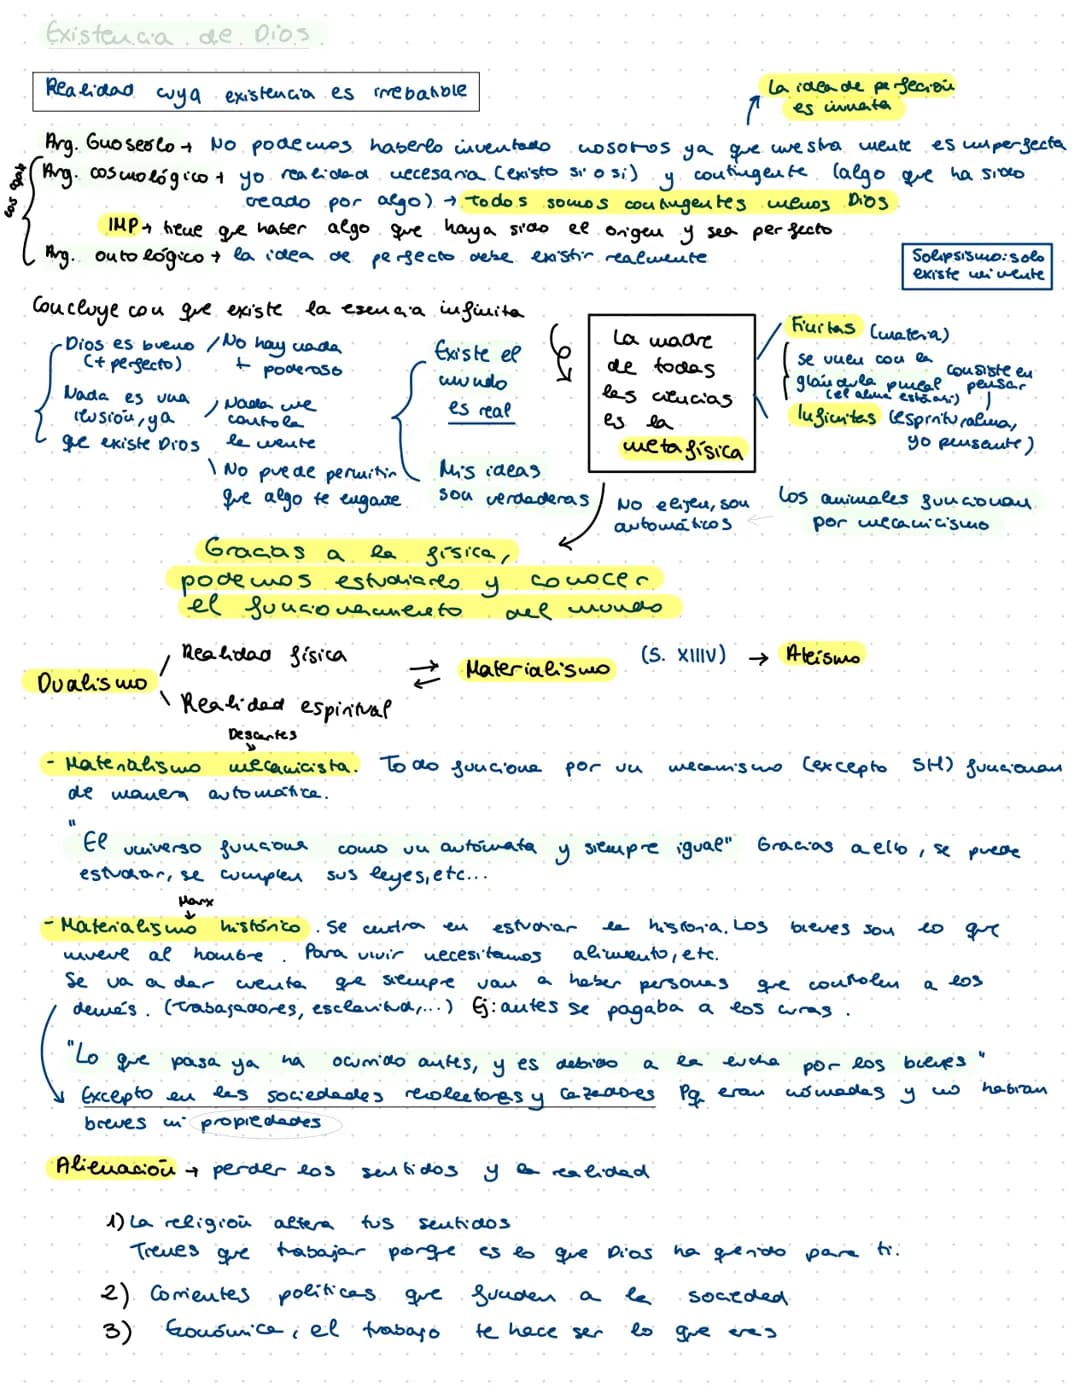 Existencia de Dios
Realidad cuya existencia es irrebatible
La idea de perfección
es innata
Arg. Gnoseolo → No podemos haberlo inventado nosotros ya que nuestra mente es imperfecta
Arg. cosmológico → yo realidad necesaria (existo si o si) y contingente (algo que ha sido
creado por algo) → todos somos contingentes menos Dios
IMP → tiene que haber algo que haya sido el origen y sea perfecto
Arg. ontológico → la idea de perfecto debe existir realmente
Solipsismo: solo
existe mi mente
Concluye con que existe la esencia infinita
Dios es bueno
(+ perfecto)
Nada es una
ilusión, ya
que existe Dios
No hay nada
+ poderoso
Nada me
controla
la mente
No puede permitir
que algo te engañe
Existe el
mundo
es real
Mis ideas
son verdaderas
La madre
de todas
las ciencias
es la
metafísica
Finitas (materia)
se unen con la
glándula pineal
(el alma está ahí)
consiste en
pensar
Infinitas (espiritualma,
yo pensante)
No elijen, son
automáticos
Los animales funcionan
por mecanicismo
Gracias a la física,
podemos estudiarlo y conocer
el funcionamiento del mundo
Dualismo
Realidad física
Realidad espiritual
⇄ Materialismo (S. XIIIV) → Ateísmo
Descartes
- Materialismo mecanicista. Todo funciona por un mecanismo (excepto SH) funcionan
de manera automática.
"El universo funciona como un autómata y siempre igual" Gracias a ello, se puede
estudiar, se cumplen sus leyes, etc...
Marx
- Materialismo histórico. Se centra en estudiar la historia. Los bienes son lo que
mueve al hombre. Para vivir necesitamos alimento, etc.
Se va a dar cuenta que siempre van a haber personas que controlen a los
demás. (Trabajadores, esclavitud,...) Ej: antes se pagaba a los curas.
"Lo que pasa ya ha ocurrido antes, y es debido a la lucha por los bienes"
Excepto en las sociedades recolectores y cazadores Pq eran nómadas y no habían
bienes ni propiedades
Alienación → perder los sentidos y la realidad
1) La religión altera tus sentidos
Tienes que trabajar porque es lo que Dios ha querido para ti.
2) Corrientes políticas que funden a la sociedad
3) Económica, el trabajo te hace ser lo que eres